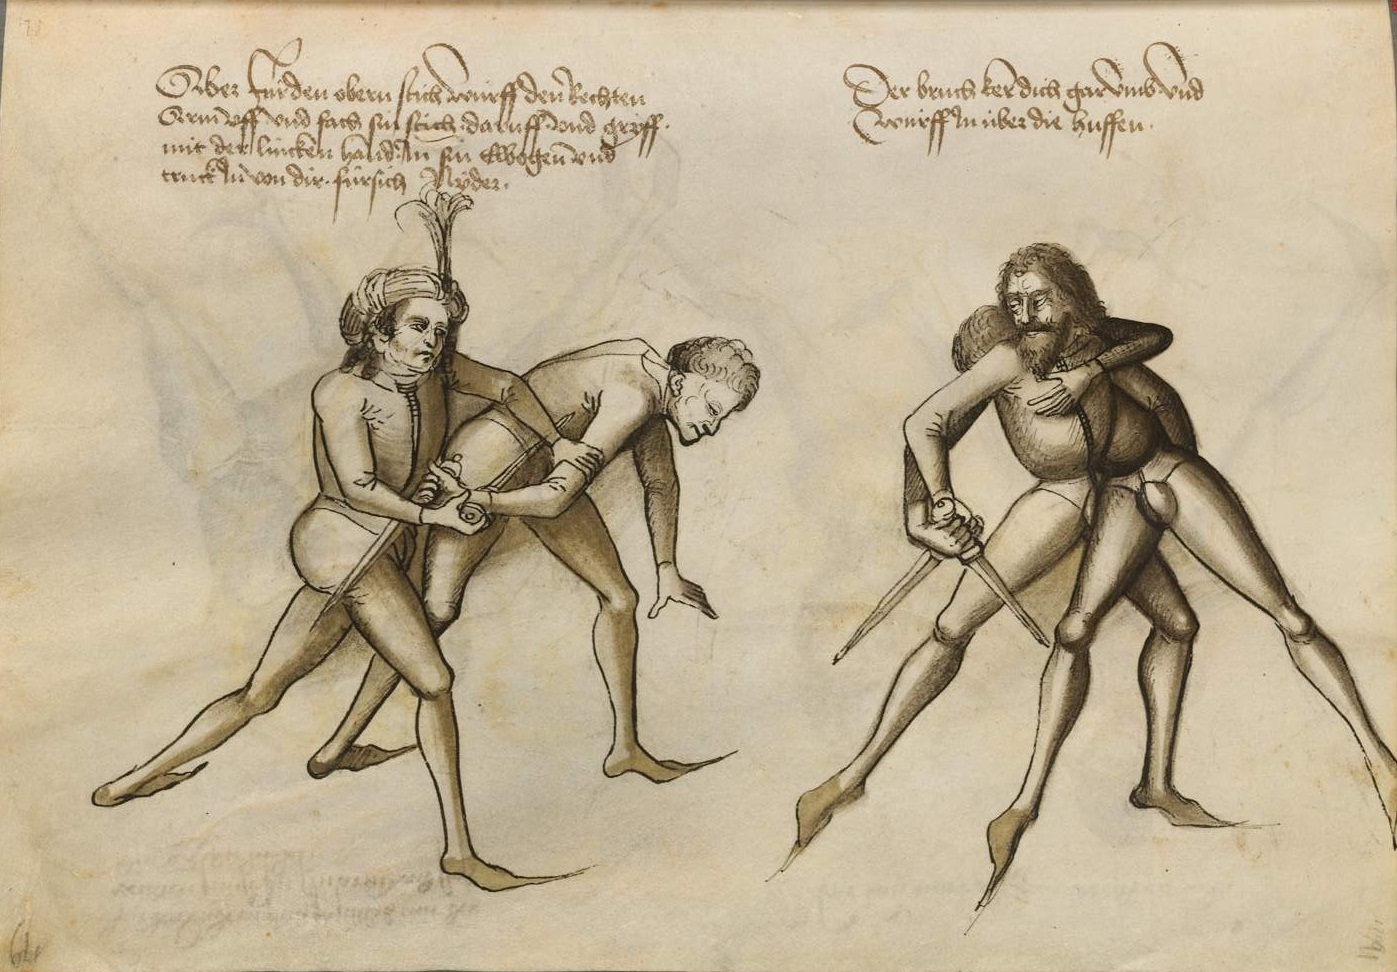 Aber für den obern stich würff den Rechten
Arm uff und fach sin stich daruff und gryff
mit der lincken hand In sin Elbogen und
truck In von dir fürsich Nyder.
Der bruch ker dich gar umb und
würff In über die huffen.